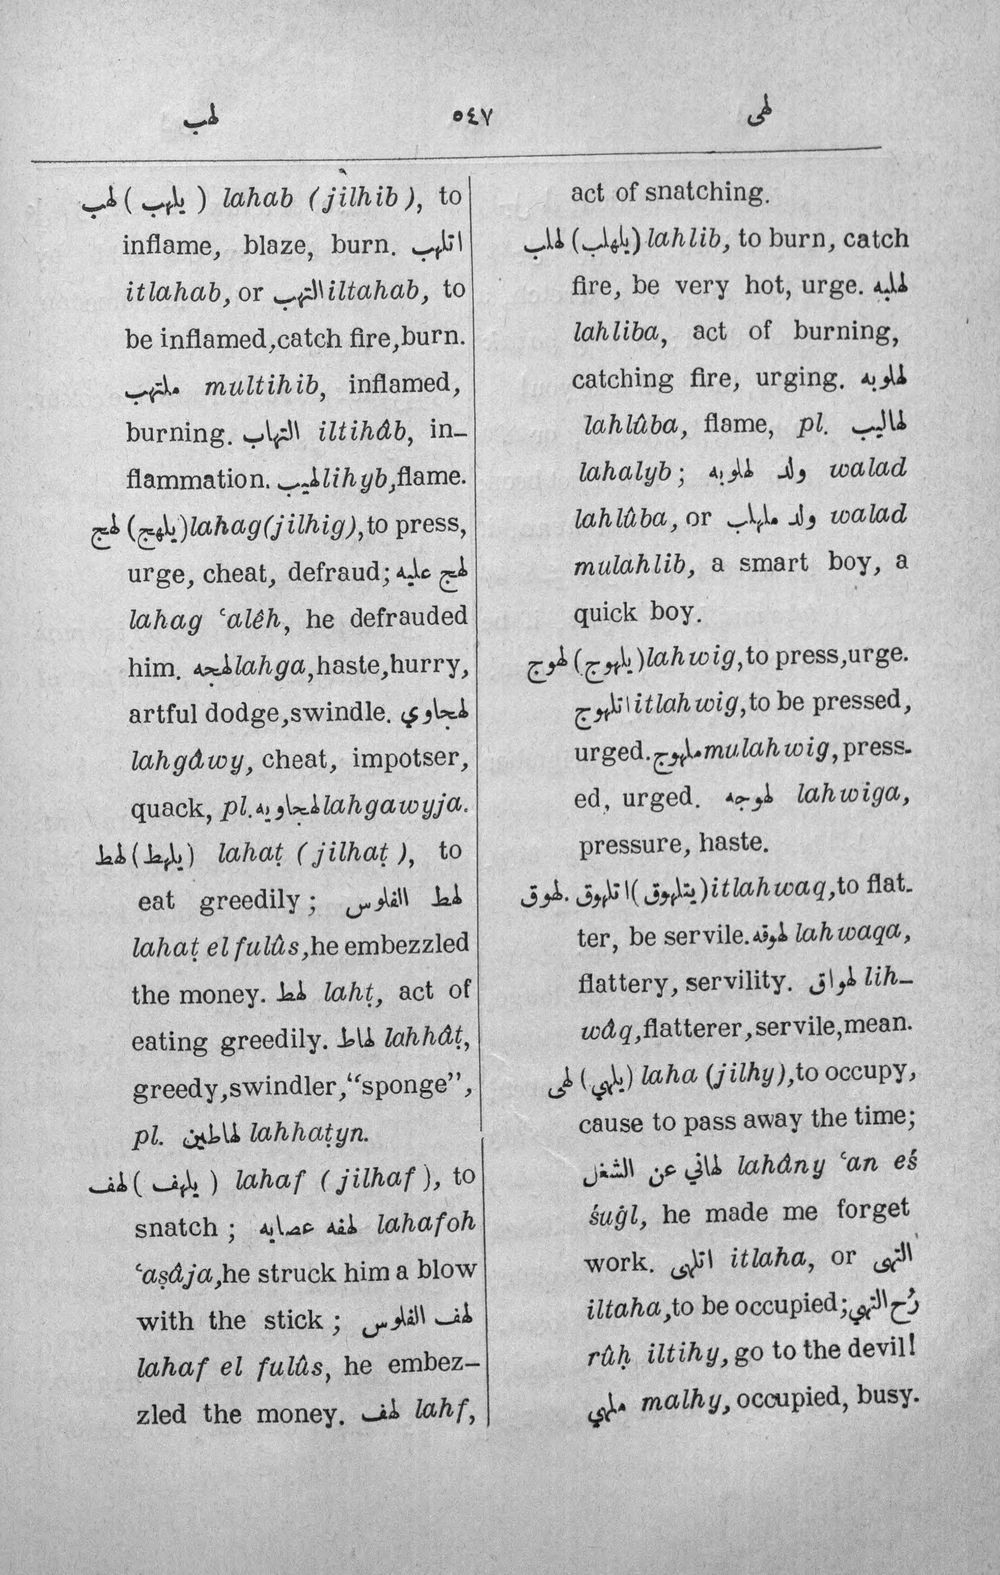 لهب ٥٤٧ لهى
لهب (يلهب) lahab (jilhib), to
inflame, blaze, burn. اتلهب
itlahab, or التهب iltahab, to
be inflamed,catch fire,burn.
ملتهب multihib, inflamed,
burning. التهاب iltihâb, in–
flammation. لهيب lihyb,flame.
لهج (يلهج) lahag(jilhig),to press,
urge, cheat, defraud; لهج عليه
lahag ʿalêh, he defrauded
him. لهجه lahga,haste,hurry,
artful dodge,swindle. لهجاوي
lahgâwy, cheat, impotser,
quack, pl. لهجاويه lahgawyja.
لهط (يلهط) lahaṭ (jilhaṭ), to
eat greedily; لهط الفلوس
lahaṭ el fulûs,he embezzled
the money. لهط lahṭ, act of
eating greedily. لهاط lahhâṭ,
greedy,swindler,“sponge”,
pl. لهاطين lahhaṭyn.
لهف (يلهف) lahaf (jilhaf), to
snatch; لهفه عصايه lahafoh
ʿaṣâja,he struck him a blow
with the stick; لهف الفلوس
lahaf el fulûs, he embez–
zled the money. لهف lahf,
act of snatching.
لهلب (يلهلب) lahlib, to burn, catch
fire, be very hot, urge. لهلبه
lahliba, act of burning,
catching fire, urging. لهلوبه
lahlûba, flame, pl. لهاليب
lahalyb; ولد لهلوبه walad
lahlûba, or ولد ملهلب walad
mulahlib, a smart boy, a
quick boy.
لهوج (يلهوج) lahwig,to press,urge.
اتلهوج itlahwig,to be pressed,
urged. ملهوج mulahwig, press-
ed, urged. لهوجه lahwiga,
pressure, haste.
لهوق. اتلهوق (يتلهوق) itlahwaq,to flat-
ter, be servile. لهوقه lahwaqa,
flattery, servility. لهواق lih–
wâq,flatterer,servile,mean.
لهى (يلهي) laha (jilhy),to occupy,
cause to pass away the time;
لهاني عن الشغل lahâny ʿan eś
śuġl, he made me forget
work. اتلهى itlaha, or التهى
iltaha,to be occupied; رُح التهي
rûḥ iltihy, go to the devil!
ملهي malhy, occupied, busy.